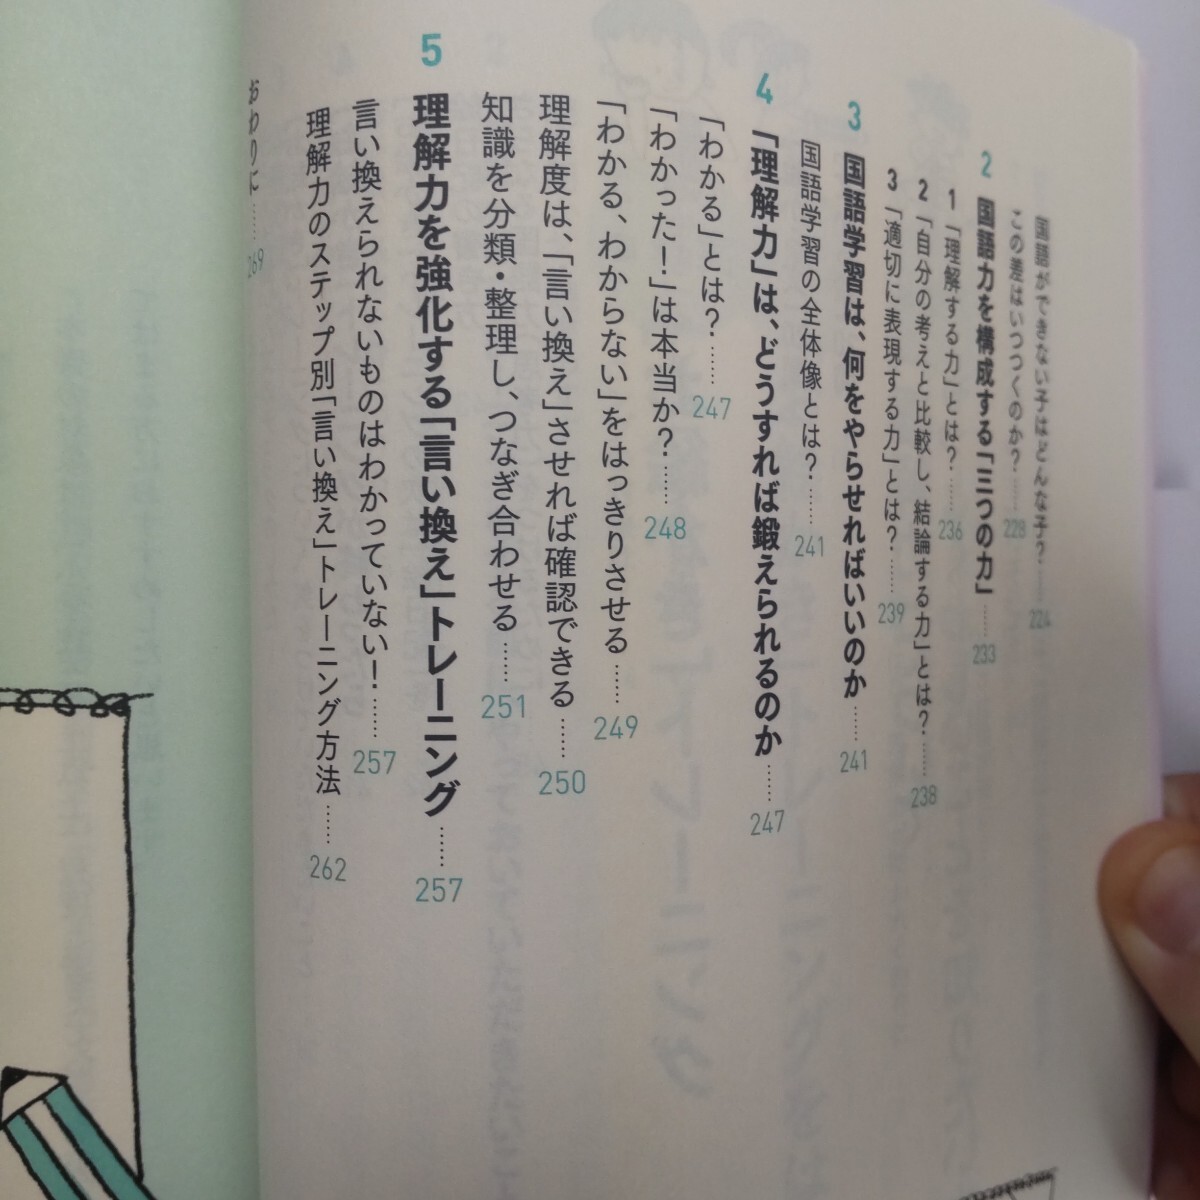 国語ができない子はどんな子？……224
この差はいつつくのか？……228
2 国語力を構成する「三つの力」……233
1 「理解する力」とは？……236
2 「自分の考えと比較し、結論する力」とは？……238
3 「適切に表現する力」とは？……239
3 国語学習は、何をやらせればいいのか……241
国語学習の全体像とは？……241
4 「理解力」は、どうすれば鍛えられるのか……247
「わかる」とは？……247
「わかった！」は本当か？……248
「わかる、わからない」をはっきりさせる……249
理解度は、「言い換え」させれば確認できる……250
知識を分類・整理し、つなぎ合わせる……251
5 理解力を強化する「言い換え」トレーニング……257
言い換えられないものはわかっていない！……257
理解力のステップ別「言い換え」トレーニング方法……262
おわりに……269